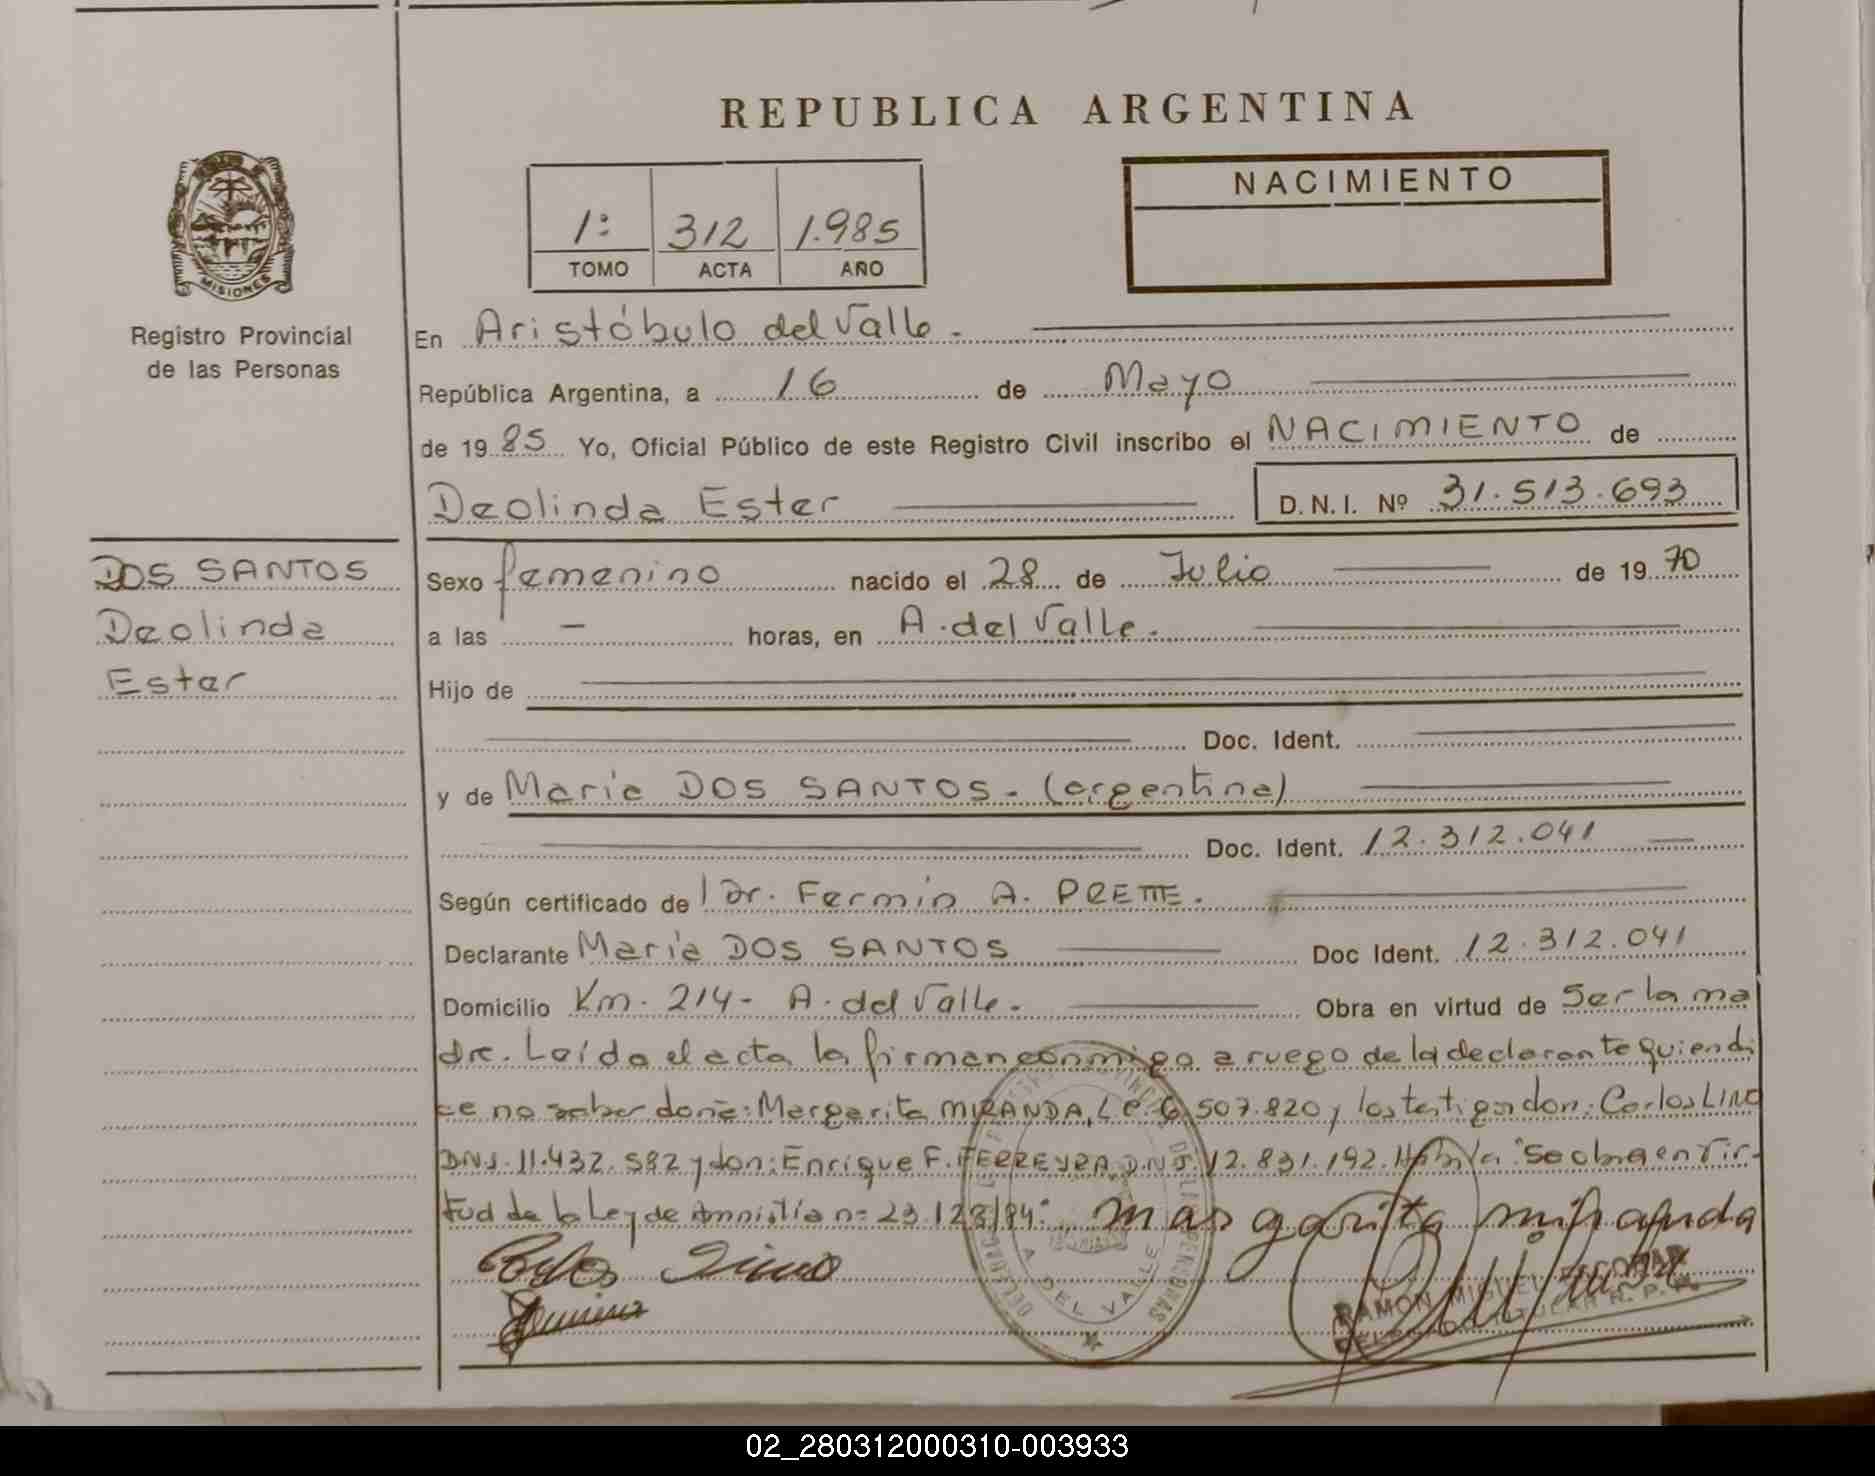 REPUBLICA ARGENTINA
MISIONES
Registro Provincial
de las Personas
1º 312 1.985
TOMO ACTA AÑO
NACIMIENTO
En Aristóbulo del Valle.-
República Argentina, a 16 de Mayo
de 1985 Yo, Oficial Público de este Registro Civil inscribo el NACIMIENTO de
Deolinda Ester D.N.I. Nº 31.513.693
DOS SANTOS
Deolinda
Ester
Sexo femenino nacido el 28 de Julio de 1970
a las - horas, en A. del Valle.-
Hijo de
Doc. Ident.
y de María DOS SANTOS.- (argentina)
Doc. Ident. 12.312.041
Según certificado de Dr. Fermín A. PRETTE.
Declarante María DOS SANTOS Doc Ident. 12.312.041
Domicilio Km. 214- A. del Valle.- Obra en virtud de Ser la ma
dre. Leída el acta la firman conmigo a ruego de la declarante quien di
ce no saber doña: Margarita MIRANDA, L.C. 6.507.820 y los testigos don: Carlos LINO
DNI. 11.432.582 y don: Enrique F. FERREYRA D.N.I. 12.831.192. "Se obra en vir-
tud de la Ley de Amnistía nº 23.128/84".
Margarita Miranda
Carlos Lino
A. DEL VALLE
RAMON MIGUEL